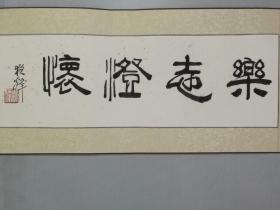 樂志澄懷